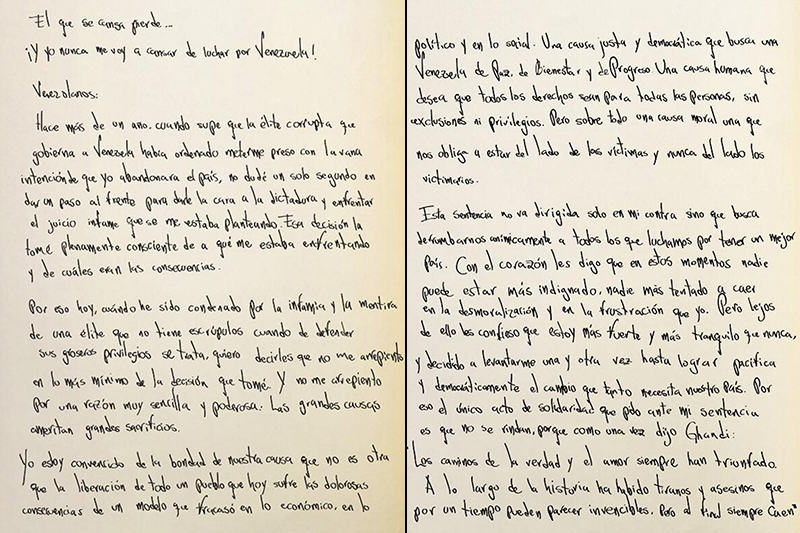 El que se cansa pierde...
¡Y yo nunca me voy a cansar de luchar por Venezuela!
Venezolanos:
Hace más de un año, cuando supe que la élite corrupta que
gobierna a Venezuela había ordenado meterme preso con la vana
intención de que yo abandonara el país, no dudé un solo segundo en
dar un paso al frente para darle la cara a la dictadura y enfrentar
el juicio infame que se me estaba planteando. Esa decisión la
tomé plenamente consciente de a qué me estaba enfrentando
y de cuáles eran las consecuencias.
Por eso hoy, cuándo he sido condenado por la infamia y la mentira
de una élite que no tiene escrúpulos cuando de defender
sus groseros privilegios se trata, quiero decirles que no me arrepiento
en lo más mínimo de la decisión que tomé. Y no me arrepiento
por una razón muy sencilla y poderosa: Las grandes causas
ameritan grandes sacrificios.
Yo estoy convencido de la bondad de nuestra causa que no es otra
que la liberación de todo un pueblo que hoy sufre las dolorosas
consecuencias de un modelo que fracasó en lo económico, en lo
político y en lo social. Una causa justa y democrática que busca una
Venezuela de Paz, de Bienestar y de Progreso. Una causa humana que
desea que todos los derechos sean para todas las personas, sin
exclusiones ni privilegios. Pero sobre todo una causa moral una que
nos obliga a estar del lado de las víctimas y nunca del lado los
victimarios.
Esta sentencia no va dirigida solo en mi contra sino que busca
derrumbarnos anímicamente a todos los que luchamos por tener un mejor
país. Con el corazón les digo que en estos momentos nadie
puede estar más indignado, nadie más tentado a caer
en la desmoralización y en la frustración que yo. Pero lejos
de ello les confieso que estoy más fuerte y más tranquilo que nunca,
y decidido a levantarme una y otra vez hasta lograr pacífica
y democráticamente el cambio que tanto necesita nuestro País. Por
eso el único acto de solidaridad que pido ante mi sentencia
es que no se rindan, porque como una vez dijo Ghandi:
"Los caminos de la verdad y el amor siempre han triunfado.
A lo largo de la historia ha habido tiranos y asesinos que
por un tiempo pueden parecer invencibles. Pero al final siempre Caen"